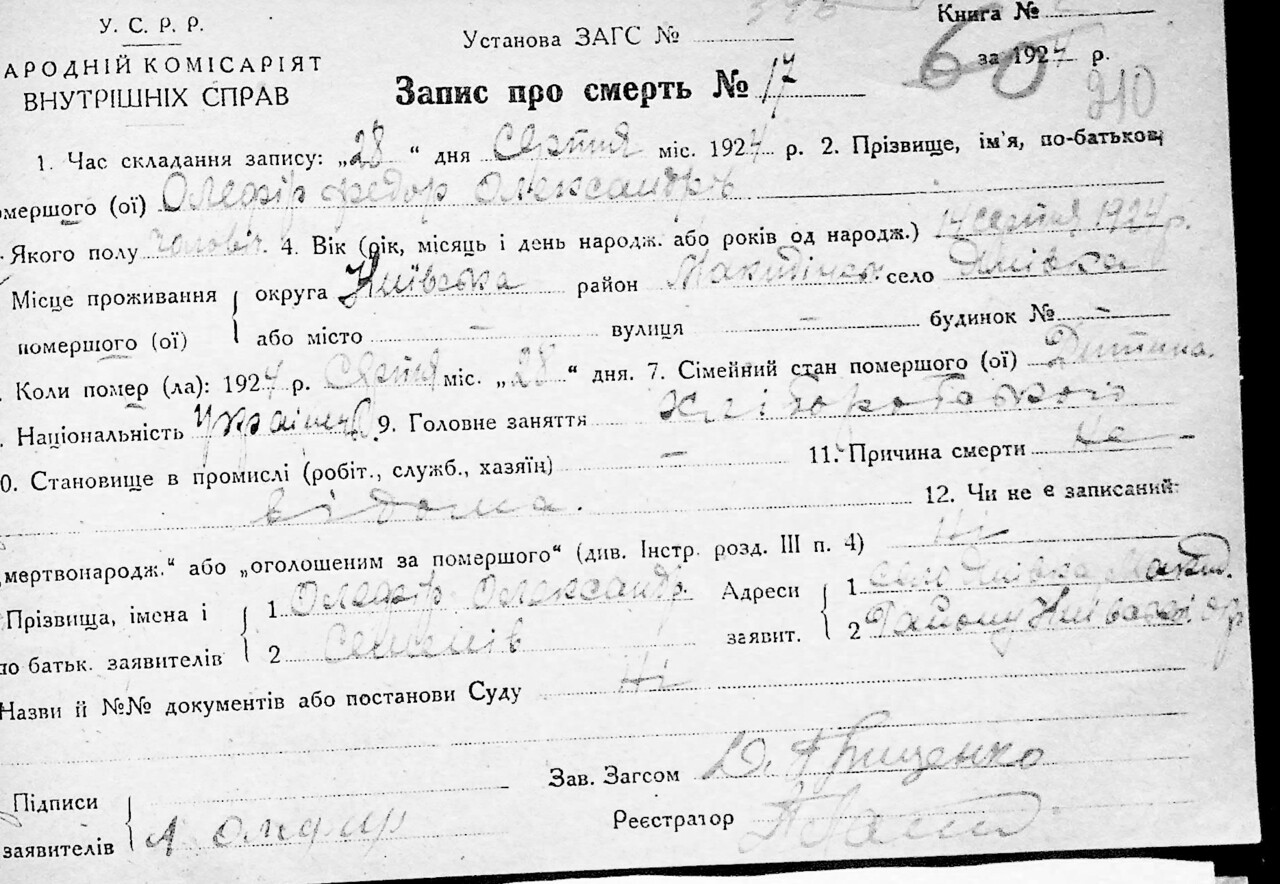 У. С. Р. Р.
Установа ЗАГС №
Книга №
АРОДНІЙ КОМІСАРІЯТ
ВНУТРІШНІХ СПРАВ
Запис про смерть № 17
за 1924 р.
60
210
1. Час складання запису: „28 “ дня Серпня міс. 1924 р. 2. Прізвище, ім'я, по-батькові
омершого (ої) Олефір Федор Олександръ
Якого полу чоловіч. 4. Вік (рік, місяць і день народж. або років од народж.) 14 серпня 1924 р.
Місце проживання округа Київська район село Димівка
помершого (ої) або місто – вулиця – будинок № –
Коли помер (ла): 1924 р. Серпня міс. „28 “ дня. 7. Сімейний стан помершого (ої) Дитина.
Національність 9. Головне заняття
0. Становище в промислі (робіт., служб., хазяїн) – 11. Причина смерти Не -
відома.
12. Чи не є записаний:
„мертвонародж.“ або „оголошеним за помершого“ (див. Інстр. розд. III п. 4) Ні
Прізвища, імена і 1 Олефір Олександр. Адреси 1 село Димівка
по батьк. заявителів 2 Семенів заявит. 2 Району Київської окр
Назви й №№ документів або постанови Суду Ні
Зав. Загсом Д. Грищенко
Підписи
заявителів А Олифир
Реєстратор